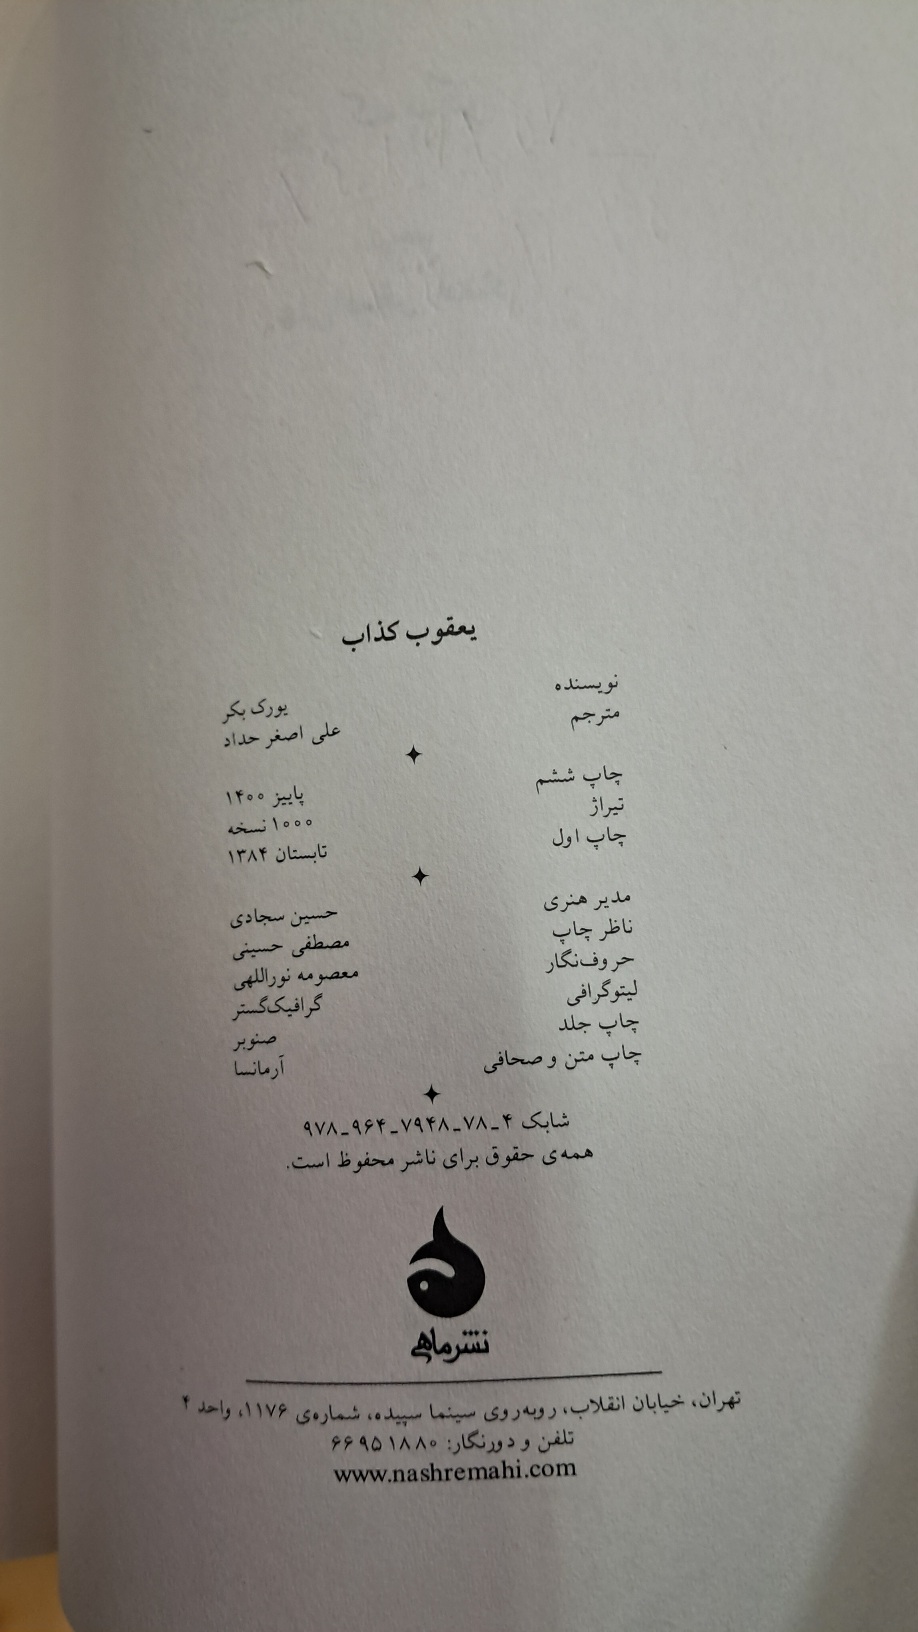 یعقوب کذاب
نویسنده یورک بکر
مترجم علی اصغر حداد
چاپ ششم پاییز ۱۴۰۰
تیراژ ۱۰۰۰ نسخه
چاپ اول تابستان ۱۳۸۴
مدیر هنری حسین سجادی
ناظر چاپ مصطفی حسینی
حروف‌نگار معصومه نوراللهی
لیتوگرافی گرافیک‌گستر
چاپ جلد صنوبر
چاپ متن و صحافی آرمانسا
شابک ۴-۷۸-۷۹۴۸-۹۶۴-۹۷۸
همه‌ی حقوق برای ناشر محفوظ است.
نشرماهی
تهران، خیابان انقلاب، روبه‌روی سینما سپیده، شماره‌ی ۱۱۷۶، واحد ۴
تلفن و دورنگار: ۶۶۹۵۱۸۸۰
www.nashremahi.com